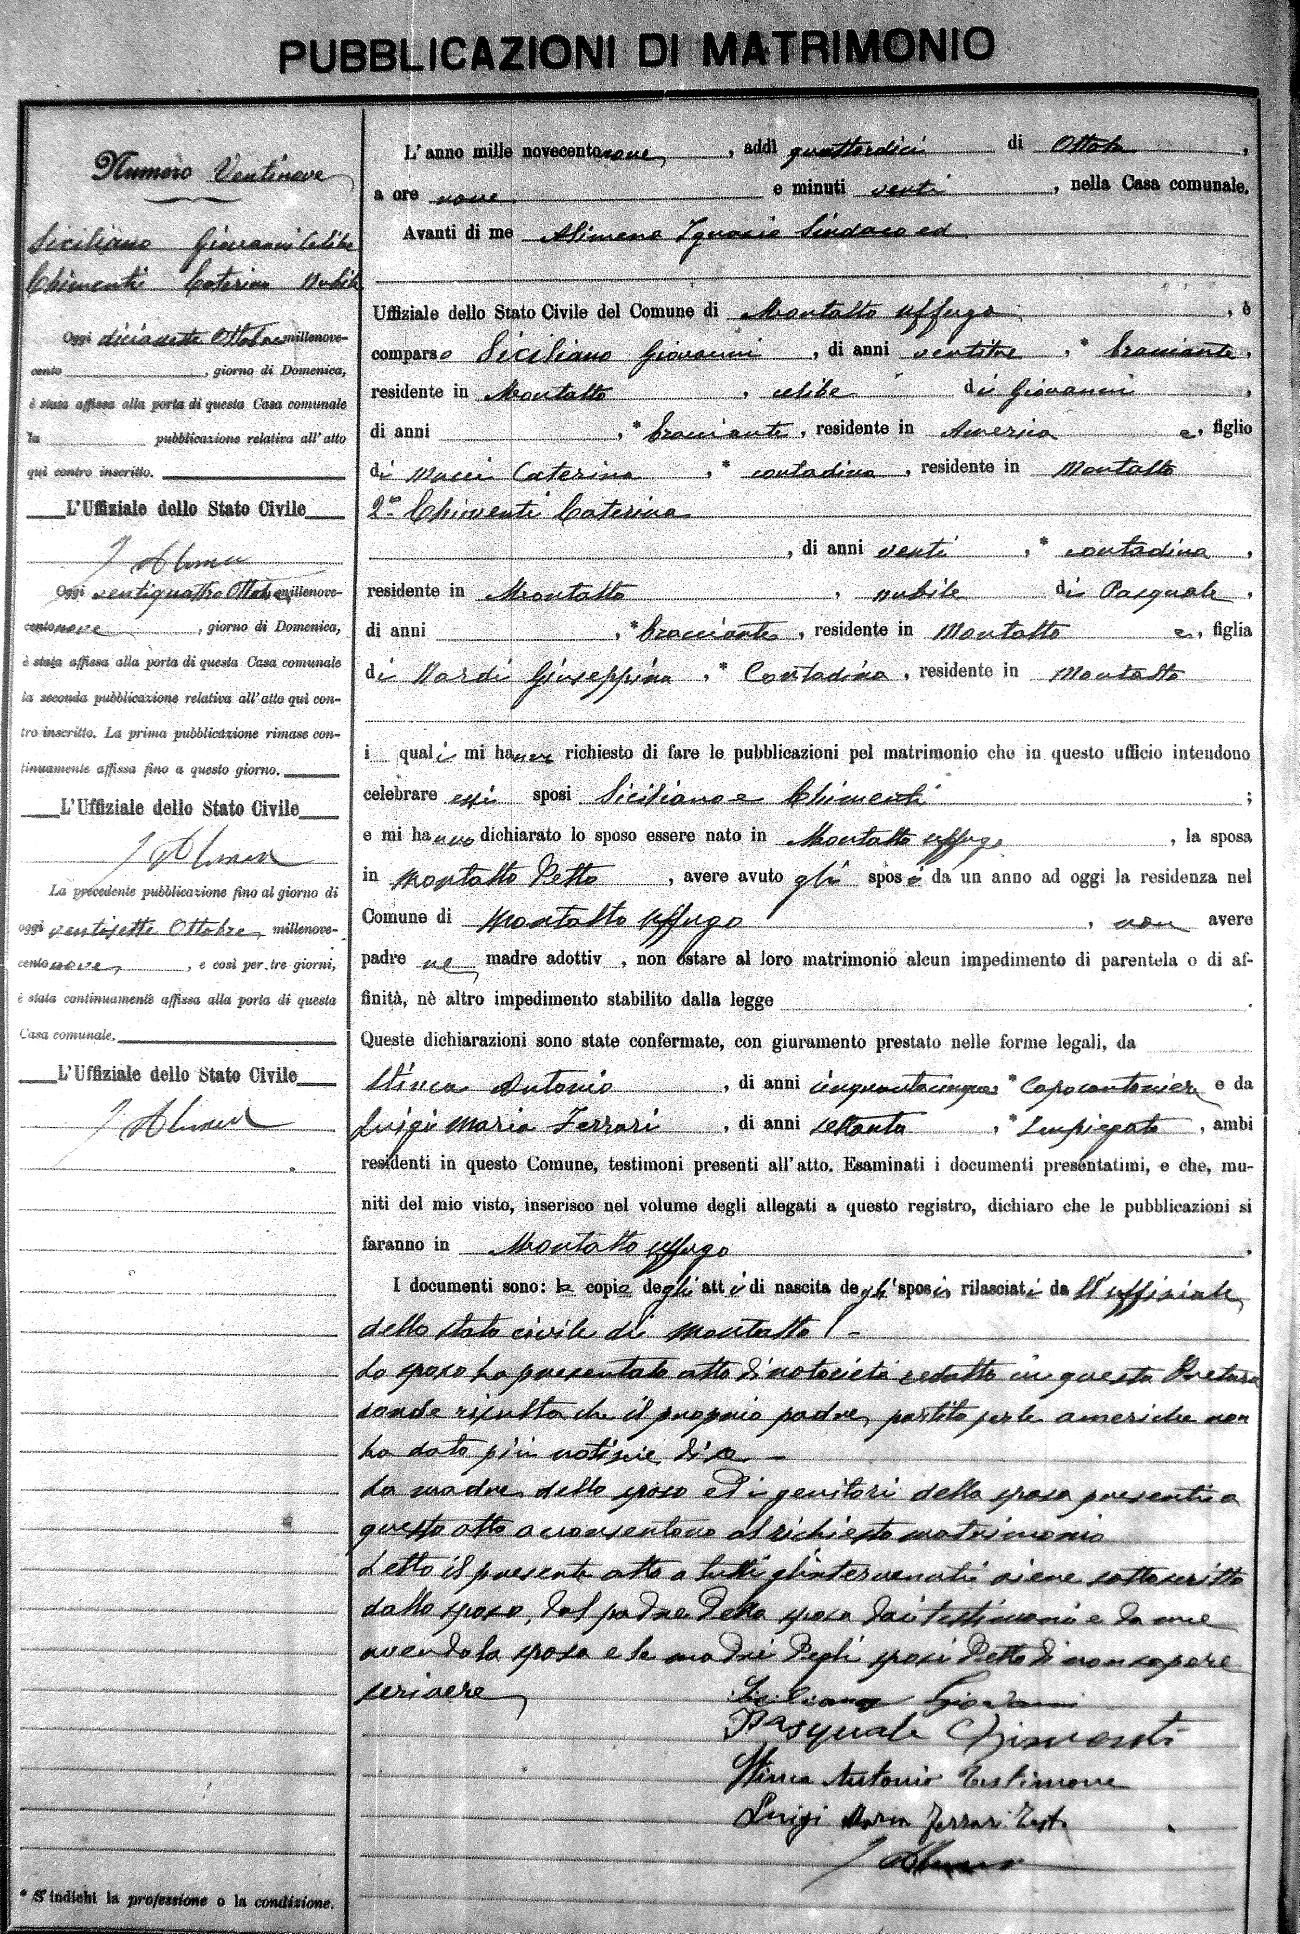 PUBBLICAZIONI DI MATRIMONIO
Numero Ventinove
Siciliano Giovanni Celibe
Chimenti Caterina Nubile
Oggi diciasette Ottobre millenove-
cento , giorno di Domenica,
è stata affissa alla porta di questa Casa comunale
la pubblicazione relativa all'atto
quì contro inscritto.
L'Uffiziale dello Stato Civile
Oggi ventiquattro Ottobre millenove-
cento nove , giorno di Domenica,
è stata affissa alla porta di questa Casa comunale
la seconda pubblicazione relativa all'atto quì con-
tro inscritto. La prima pubblicazione rimase con-
tinuamente affissa fino a questo giorno.
L'Uffiziale dello Stato Civile
La precedente pubblicazione fino al giorno di
oggi ventisette Ottobre millenove-
cento nove, , e così per tre giorni,
è stata continuamente affissa alla porta di questa
Casa comunale.
L'Uffiziale dello Stato Civile
* S'indichi la professione o la condizione.
L'anno mille novecentonove, , addì quattordici di Ottobre ,
a ore nove e minuti venti , nella Casa comunale.
Avanti di me Alimena Ignazio Sindaco ed
Uffiziale dello Stato Civile del Comune di Montalto Uffugo , è
comparso Siciliano Giovanni , di anni ventitre , * bracciante,
residente in Montalto , celibe di Giovanni ,
di anni , * bracciante, residente in America e, figlio
di Mucci Caterina , * contadina , residente in Montalto
2° Chimenti Caterina
, di anni venti , * contadina ,
residente in Montalto , nubile di Pasquale ,
di anni , * bracciante , residente in Montalto e, figlia
di Nardi Giuseppina , * Contadina , residente in Montalto
i quali mi hanno richiesto di fare le pubblicazioni pel matrimonio che in questo ufficio intendono
celebrare essi sposi Siciliano e Chimenti ;
e mi hanno dichiarato lo sposo essere nato in Montalto Uffugo , la sposa
in Montalto Detto , avere avuto gli sposi da un anno ad oggi la residenza nel
Comune di Montalto Uffugo , non avere
padre ne madre adottiv , non ostare al loro matrimonio alcun impedimento di parentela o di af-
finità, nè altro impedimento stabilito dalla legge .
Queste dichiarazioni sono state confermate, con giuramento prestato nelle forme legali, da
Stinca Antonio , di anni cinquantacinque * Capocantoniere e da
Luigi Maria Ferrari , di anni settanta , * Impiegato , ambi
residenti in questo Comune, testimoni presenti all'atto. Esaminati i documenti presentatimi, e che, mu-
niti del mio visto, inserisco nel volume degli allegati a questo registro, dichiaro che le pubblicazioni si
faranno in Montalto Uffugo .
I documenti sono: le copie degli atti di nascita degli sposi rilasciati da ll'uffiziale
dello stato civile di Montalto. -
Lo sposo ha presentato atto di notorietà redatto in questa Pretura
donde risulta che il proprio padre, partito per le americhe non
ha dato più notizie di se -
La madre dello sposo ed i genitori della sposa presenti a
questo atto acconsentono al richiesto matrimonio
Letto il presente atto a tutti gl'intervenuti viene sottoscritto
dallo sposo, dal padre della sposa dai testimoni e da me
avendo la sposa e le madri degli sposi detto di non sapere
scrivere,
Siciliano Giovanni
Pasquale Chimenti
Stinca Antonio Testimone
Luigi Maria Ferrari Test.